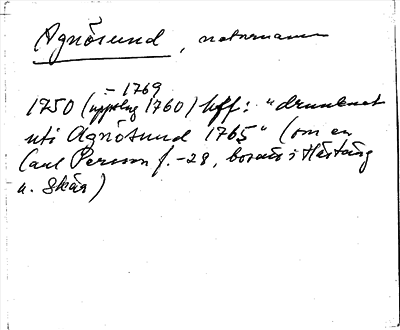 Agnösund, naturnamn
– 1769
1750 (uppslag 1760) hff: "drunknat
uti Agnösund 1765" (om en
Carl Persson f. -28, bosatt i
u. Skår)